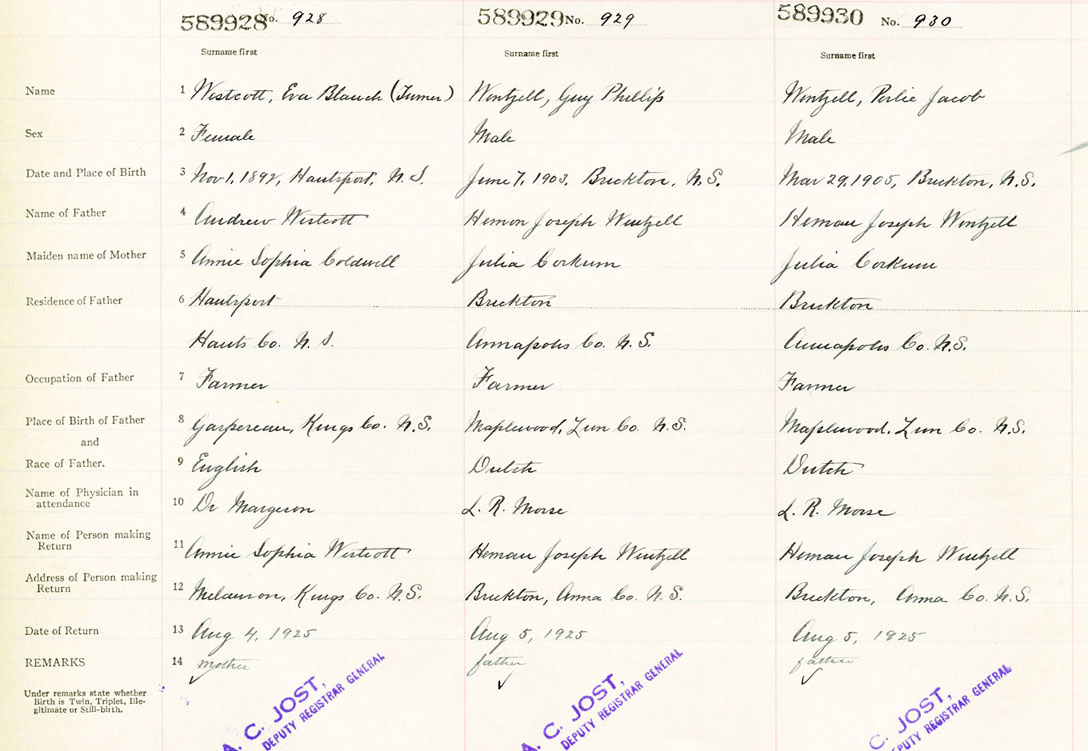 589928 No. 928 589929 No. 929 589930 No. 930
Surname first Surname first Surname first
Name 1 Westcott, Eva Blanch (Turner) Wentzell, Guy Phillip Wentzell, Perlie Jacob
Sex 2 Female Male Male
Date and Place of Birth 3 Nov 1, 1892, Hantsport, N.S. June 7, 1903, Brickton, N.S. Mar 29, 1905, Brickton, N.S.
Name of Father 4 Andrew Westcott Heman Joseph Wentzell Heman Joseph Wentzell
Maiden name of Mother 5 Annie Sophia Coldwell Julia Corkum Julia Corkum
Residence of Father 6 Hantsport Brickton Brickton
Hants Co. N.S. Annapolis Co. N.S. Annapolis Co. N.S.
Occupation of Father 7 Farmer Farmer Farmer
Place of Birth of Father 8 Gaspereau, Kings Co. N.S. Maplewood, Lun Co. N.S. Maplewood, Lun Co. N.S.
and
Race of Father. 9 English Dutch Dutch
Name of Physician in
attendance 10 Dr Margeson L. R. Morse L. R. Morse
Name of Person making
Return 11 Annie Sophia Westcott Heman Joseph Wentzell Heman Joseph Wentzell
Address of Person making
Return 12 Melanson, Kings Co. N.S. Brickton, Anna Co. N.S. Brickton, Anna Co. N.S.
Date of Return 13 Aug 4, 1925 Aug 5, 1925 Aug 5, 1925
REMARKS 14 mother father father
Under remarks state whether
Birth is Twin, Triplet, Ille-
gitimate or Still-birth.
A. C. JOST,
DEPUTY REGISTRAR GENERAL
A. C. JOST,
DEPUTY REGISTRAR GENERAL
C. JOST,
DEPUTY REGISTRAR GENERAL